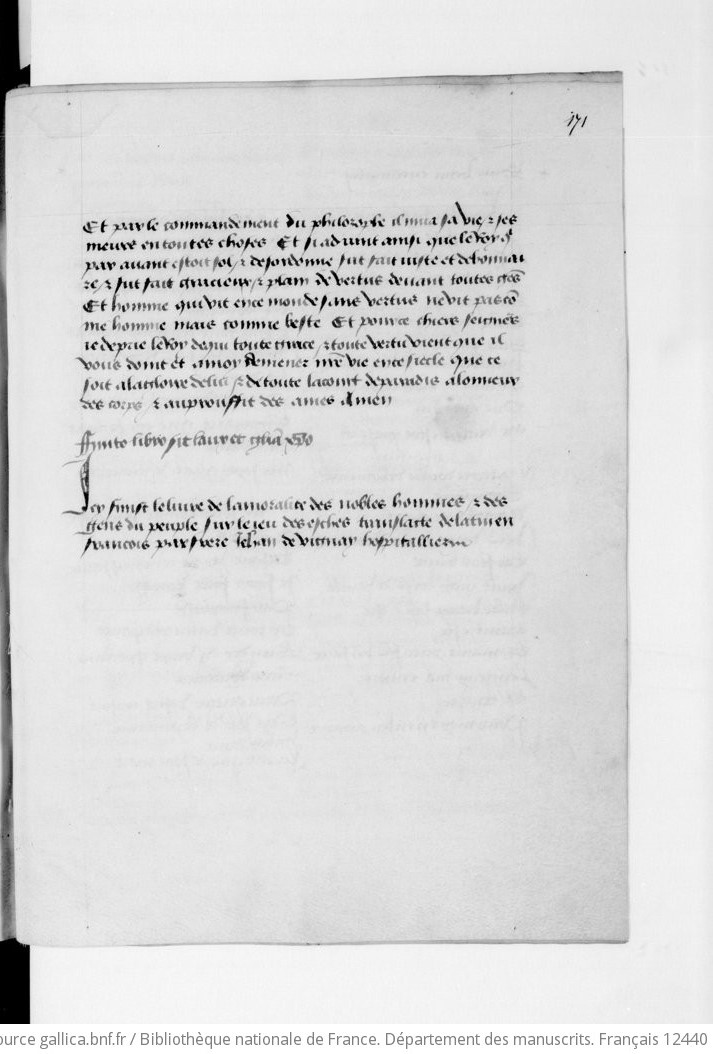 171
Et par le commandement du philozophe il mua sa vie et ses
meurs en toutes choses Et si advint ainsi que le Roy q̄
par avant estoit fol et desordonne fut fait iuste et debonnai
re et fut fait gracieux et plain de vertus devant toutes gēs
Et homme qui vit en ce monde sans vertus ne vit pas cō
me homme mais comme beste Et pource chiers seignēs
ie deprie le Roy de qui toute grace et toute vertu vient que il
vous doint et a moy demener nr̄e vie en ce siecle que ce
soit a la gloire de lui et de toute la court de paradis a lonneur
des corps et au prouffit des ames Amen
Ffinito libro sit laux et glīa xp̄o
Icy finist le livre de la moralite des nobles hommes et des
gens du peuple sur le ieu des esches translate de latin en
francois par frere Iehan de vignay hospitallier
source gallica.bnf.fr / Bibliothèque nationale de France. Département des manuscrits. Français 12440